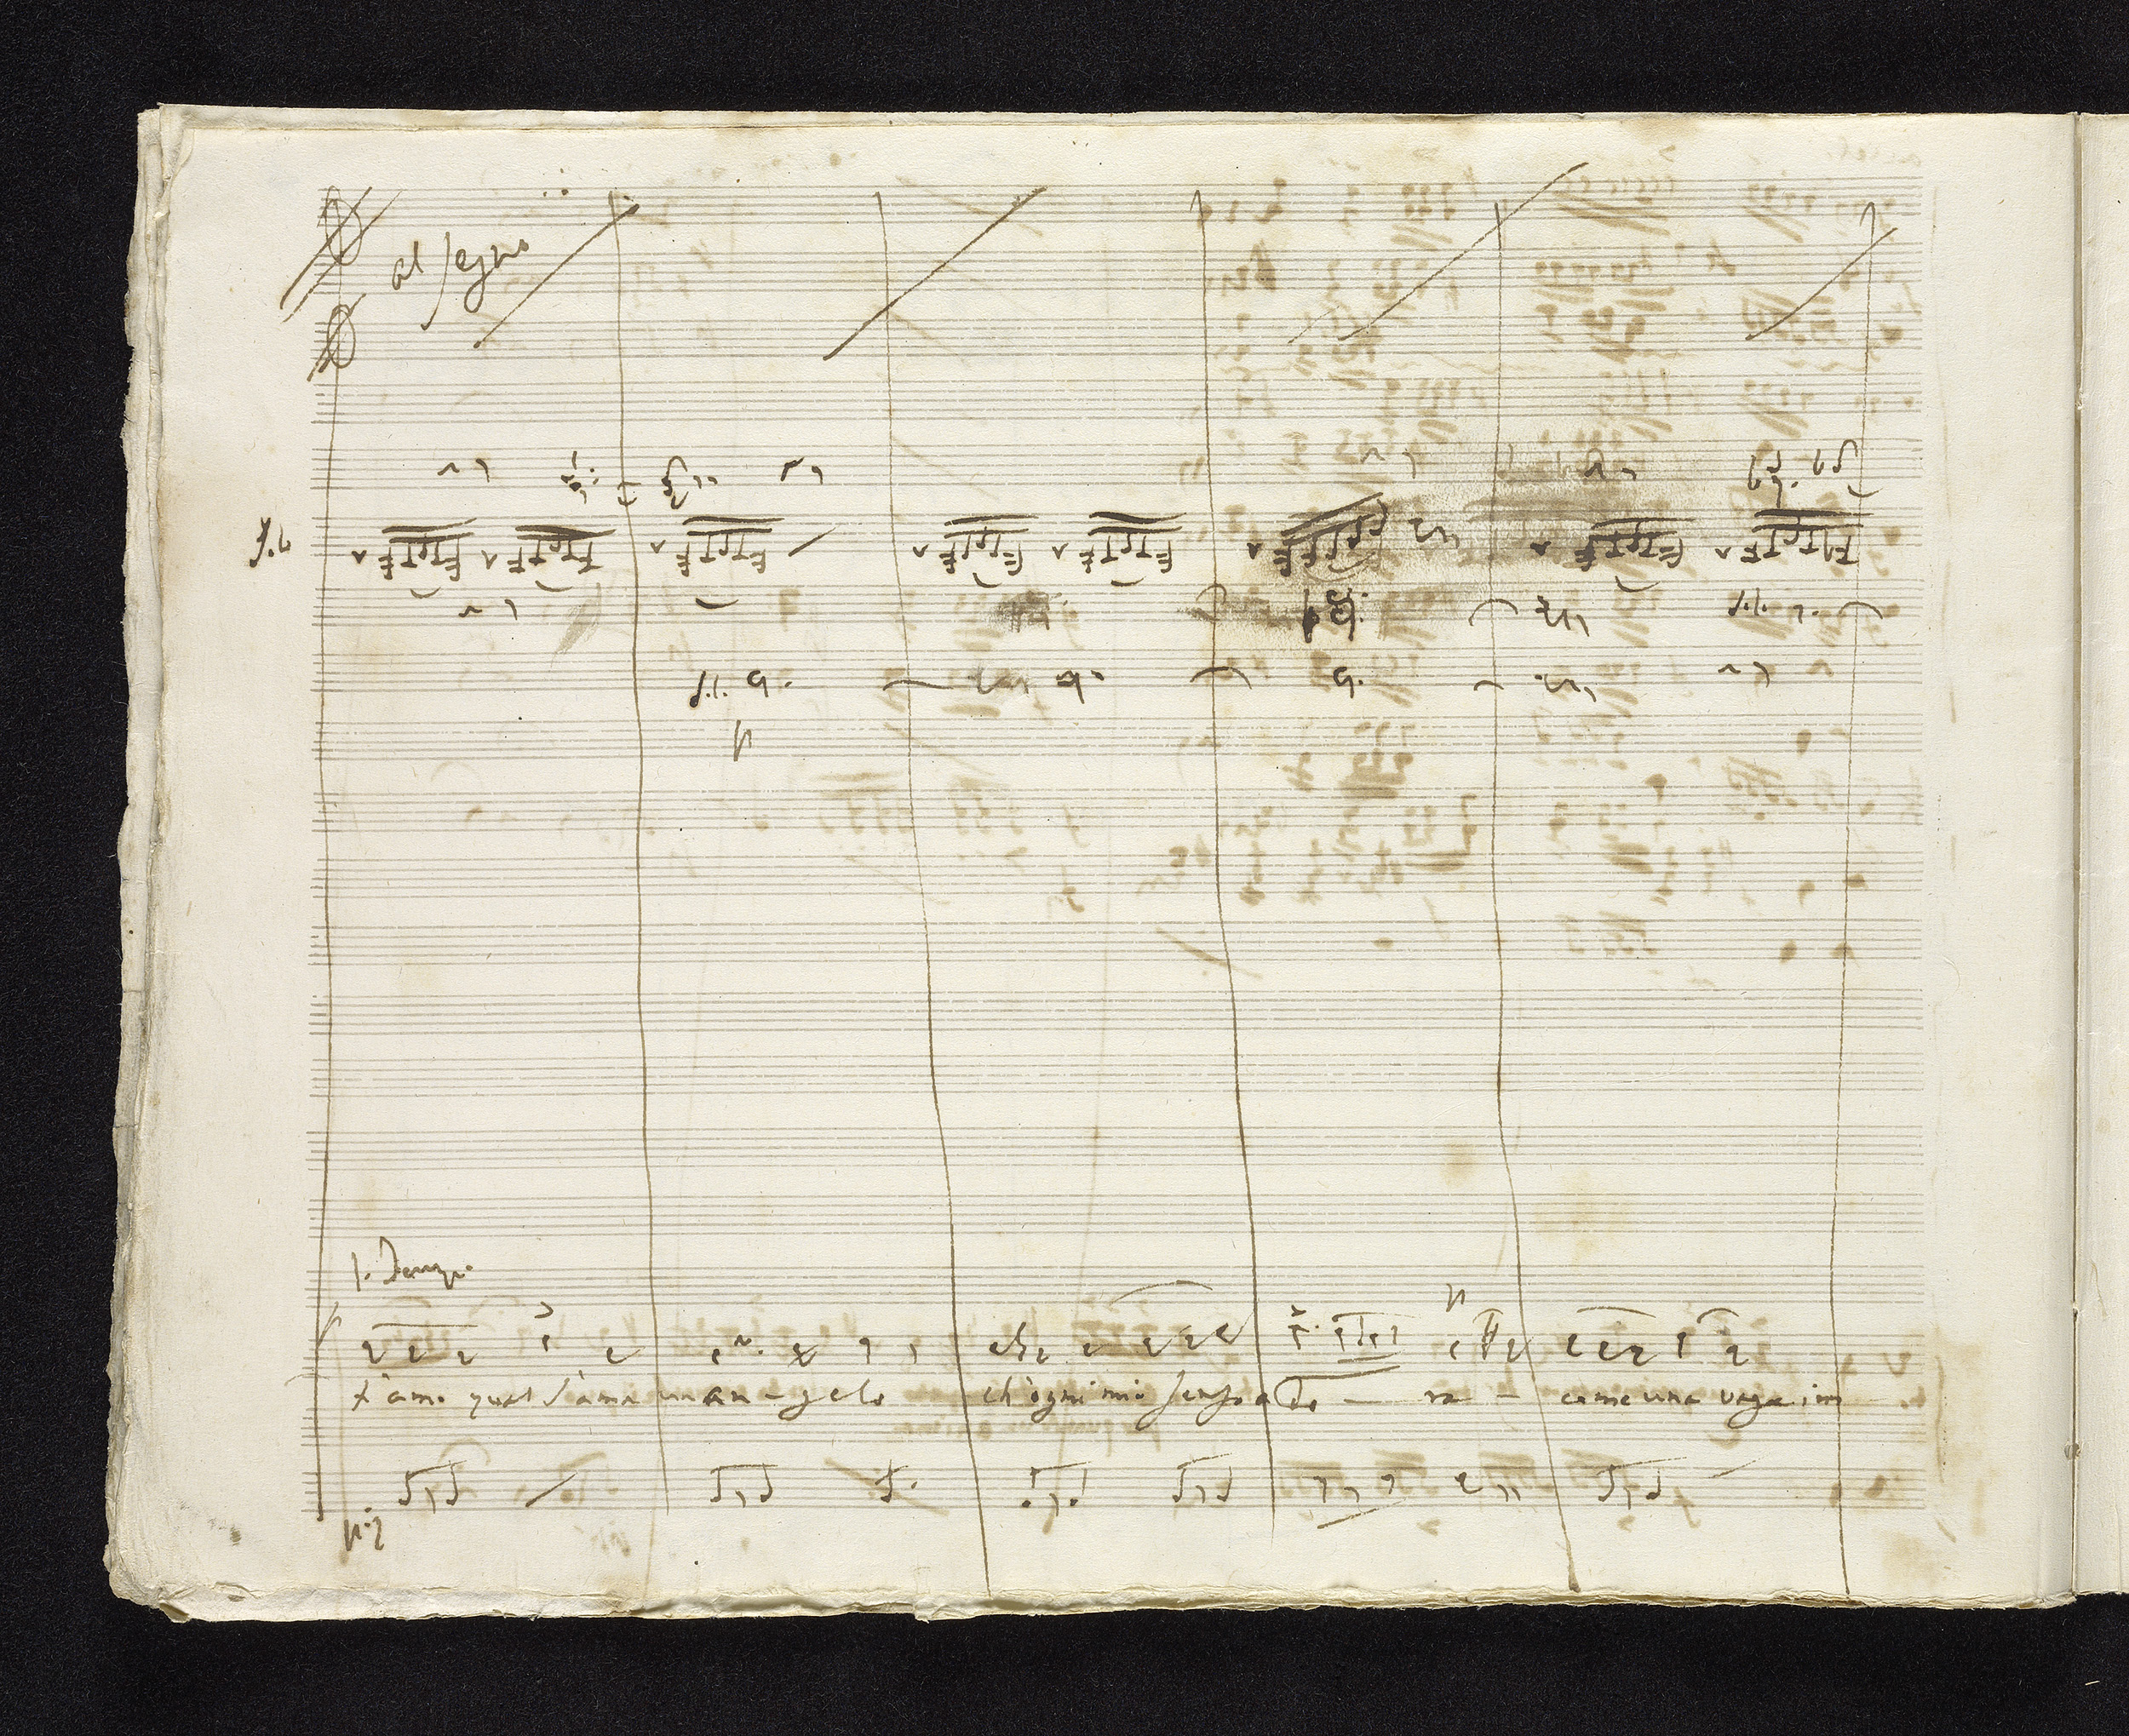 al segno
1. Temp.
t'amo qual s'ama un an - gelo ch'ogni mio senso ado - ra - come una vaga im